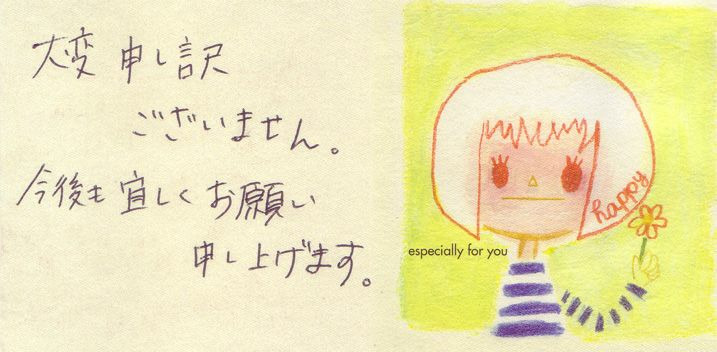 大変申し訳
ございません。
今後も宜しくお願い
申し上げます。
happy
especially for you